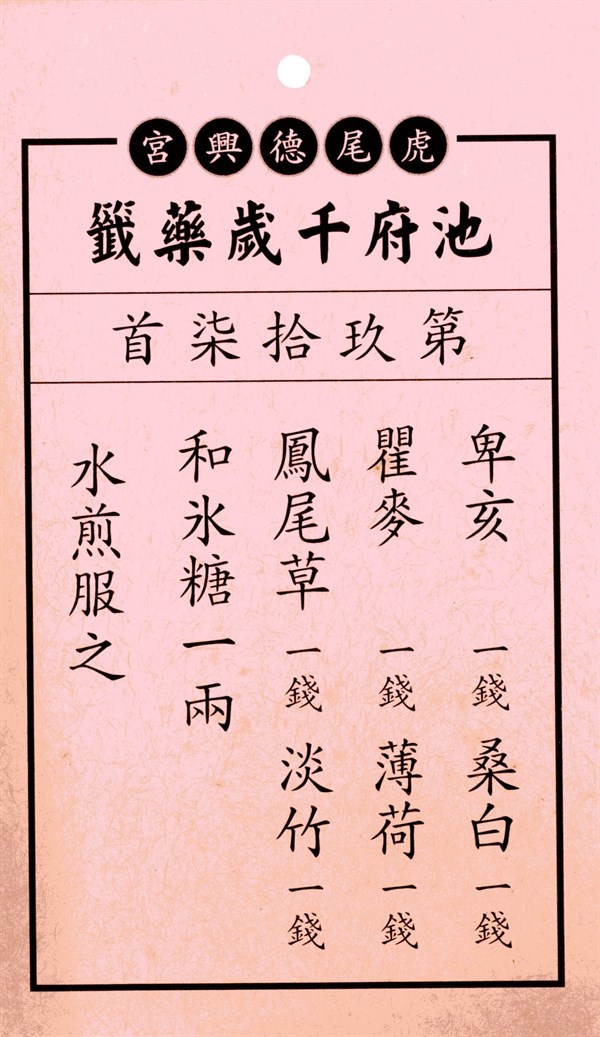 虎尾德興宮
池府千歲藥籤
第玖拾柒首
卑亥 一錢 桑白 一錢
瞿麥 一錢 薄荷 一錢
鳳尾草 一錢 淡竹 一錢
和氷糖一兩
水煎服之